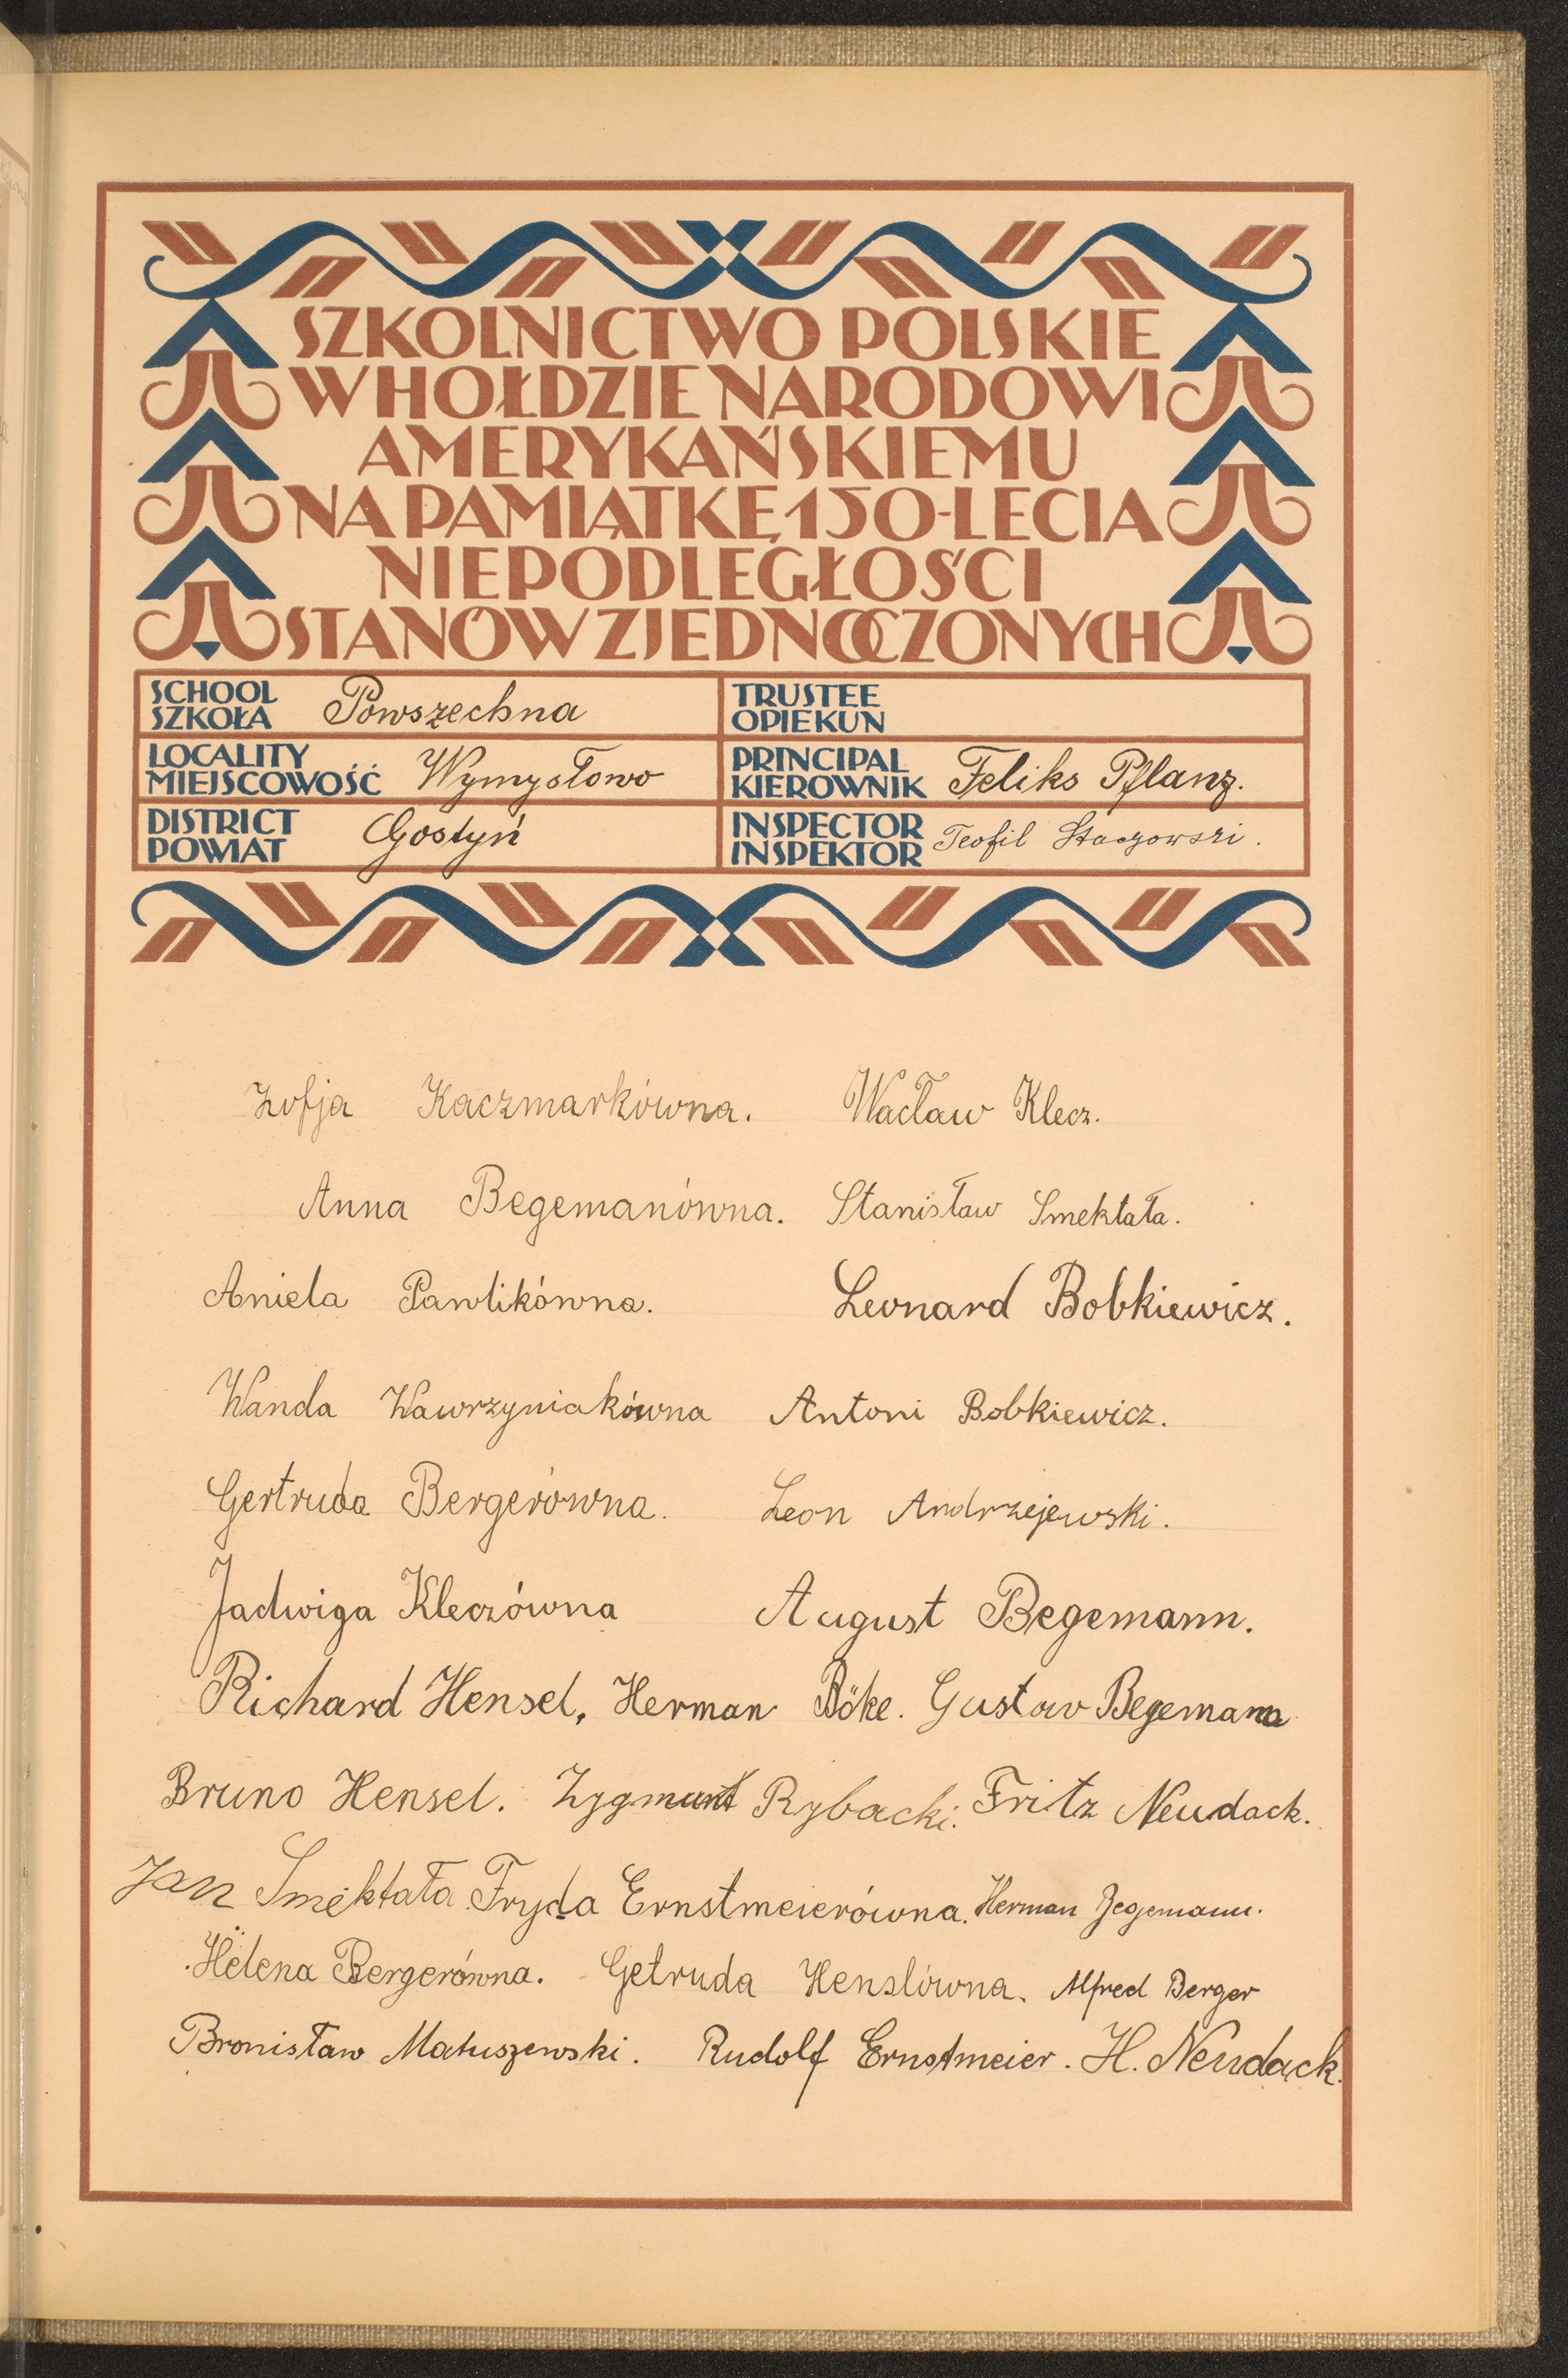 SZKOLNICTWO POLSKIE
W HOŁDZIE NARODOWI
AMERYKAŃSKIEMU
NA PAMIĄTKĘ 150-LECIA
NIEPODLEGŁOŚCI
STANÓW ZJEDNOCZONYCH
SCHOOL
SZKOŁA Powszechna
TRUSTEE
OPIEKUN
LOCALITY
MIEJSCOWOŚĆ Wymysłowo
PRINCIPAL
KIEROWNIK Feliks Pflanz.
DISTRICT
POWIAT Gostyń
INSPECTOR
INSPEKTOR Teofil
Zofja Kaczmarkówna. Wacław Klecz.
Anna Begemanówna. Stanisław Smektała.
Aniela Pawlikówna. Leonard Bobkiewicz.
Wanda Wawrzyniakówna Antoni Bobkiewicz.
Gertruda Bergerówna. Leon Andrzejewski.
Jadwiga Kleczówna August Begemann.
Richard Hensel, Herman Böke. Gustav Begemann
Bruno Hensel. Zygmunt Rybacki. Fritz Neudack.
Jan Smektała. Fryda Ernstmeierówna. Herman Begemann.
Helena Bergerówna. Getruda Henslówna. Alfred Berger
Bronisław Matuszewski. Rudolf Ernstmeier. H. Neudack.